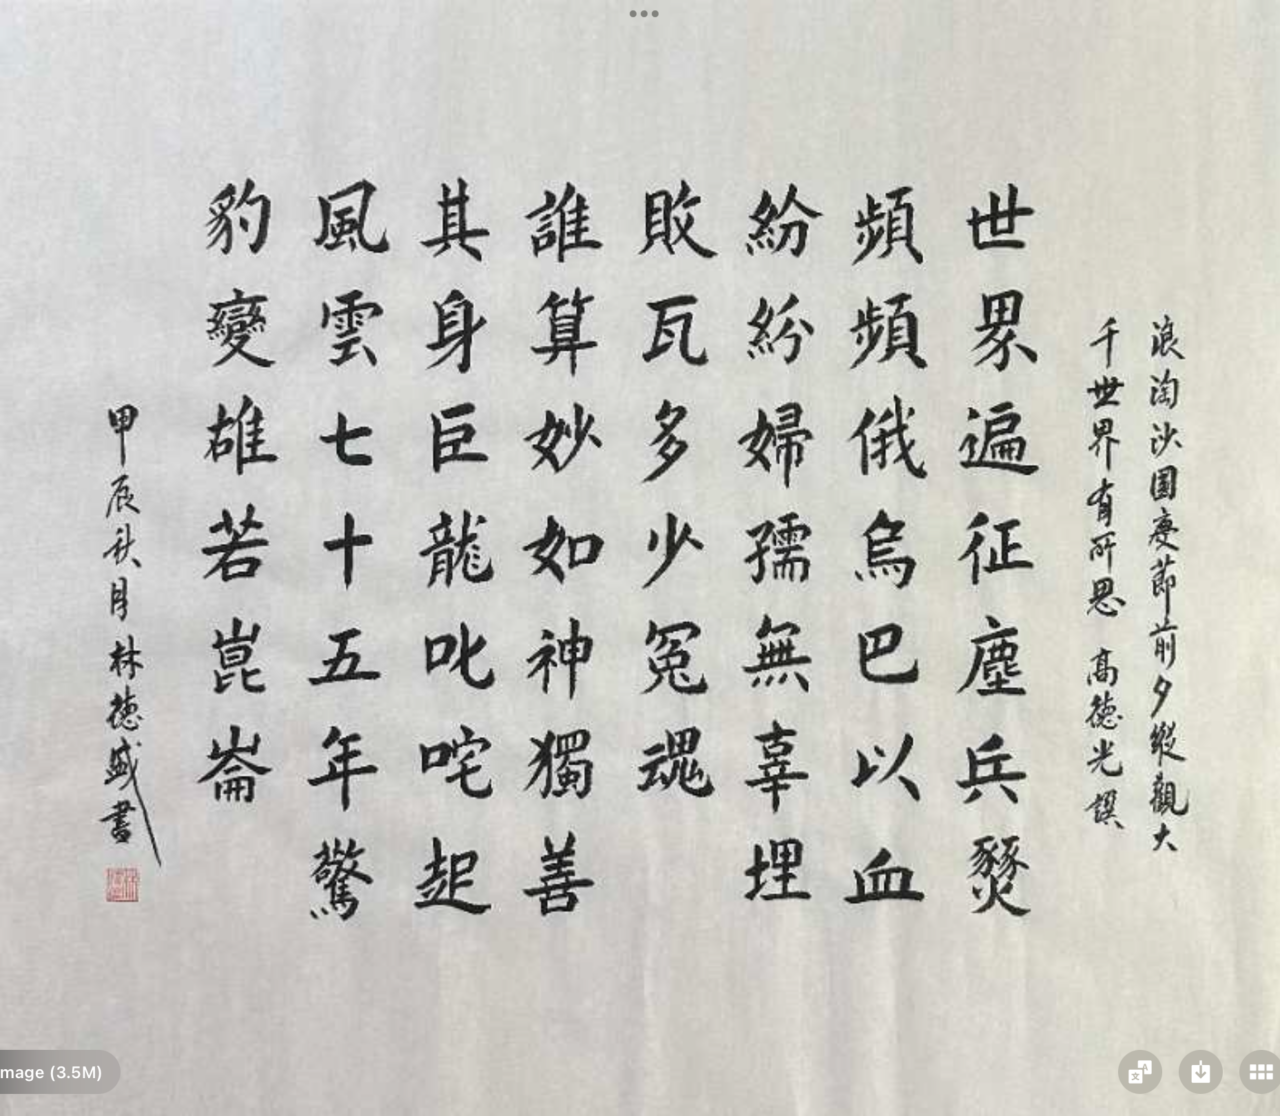 浪淘沙国慶節前夕縱觀大
千世界有所思 高德光撰
世界遍征塵兵燹
頻頻俄烏巴以血
紛紛婦孺無辜埋
敗瓦多少冤魂
誰算妙如神獨善
其身巨龍叱咤起
風雲七十五年驚
豹變雄若崑崙
甲辰秋月林德盛書
mage (3.5M)